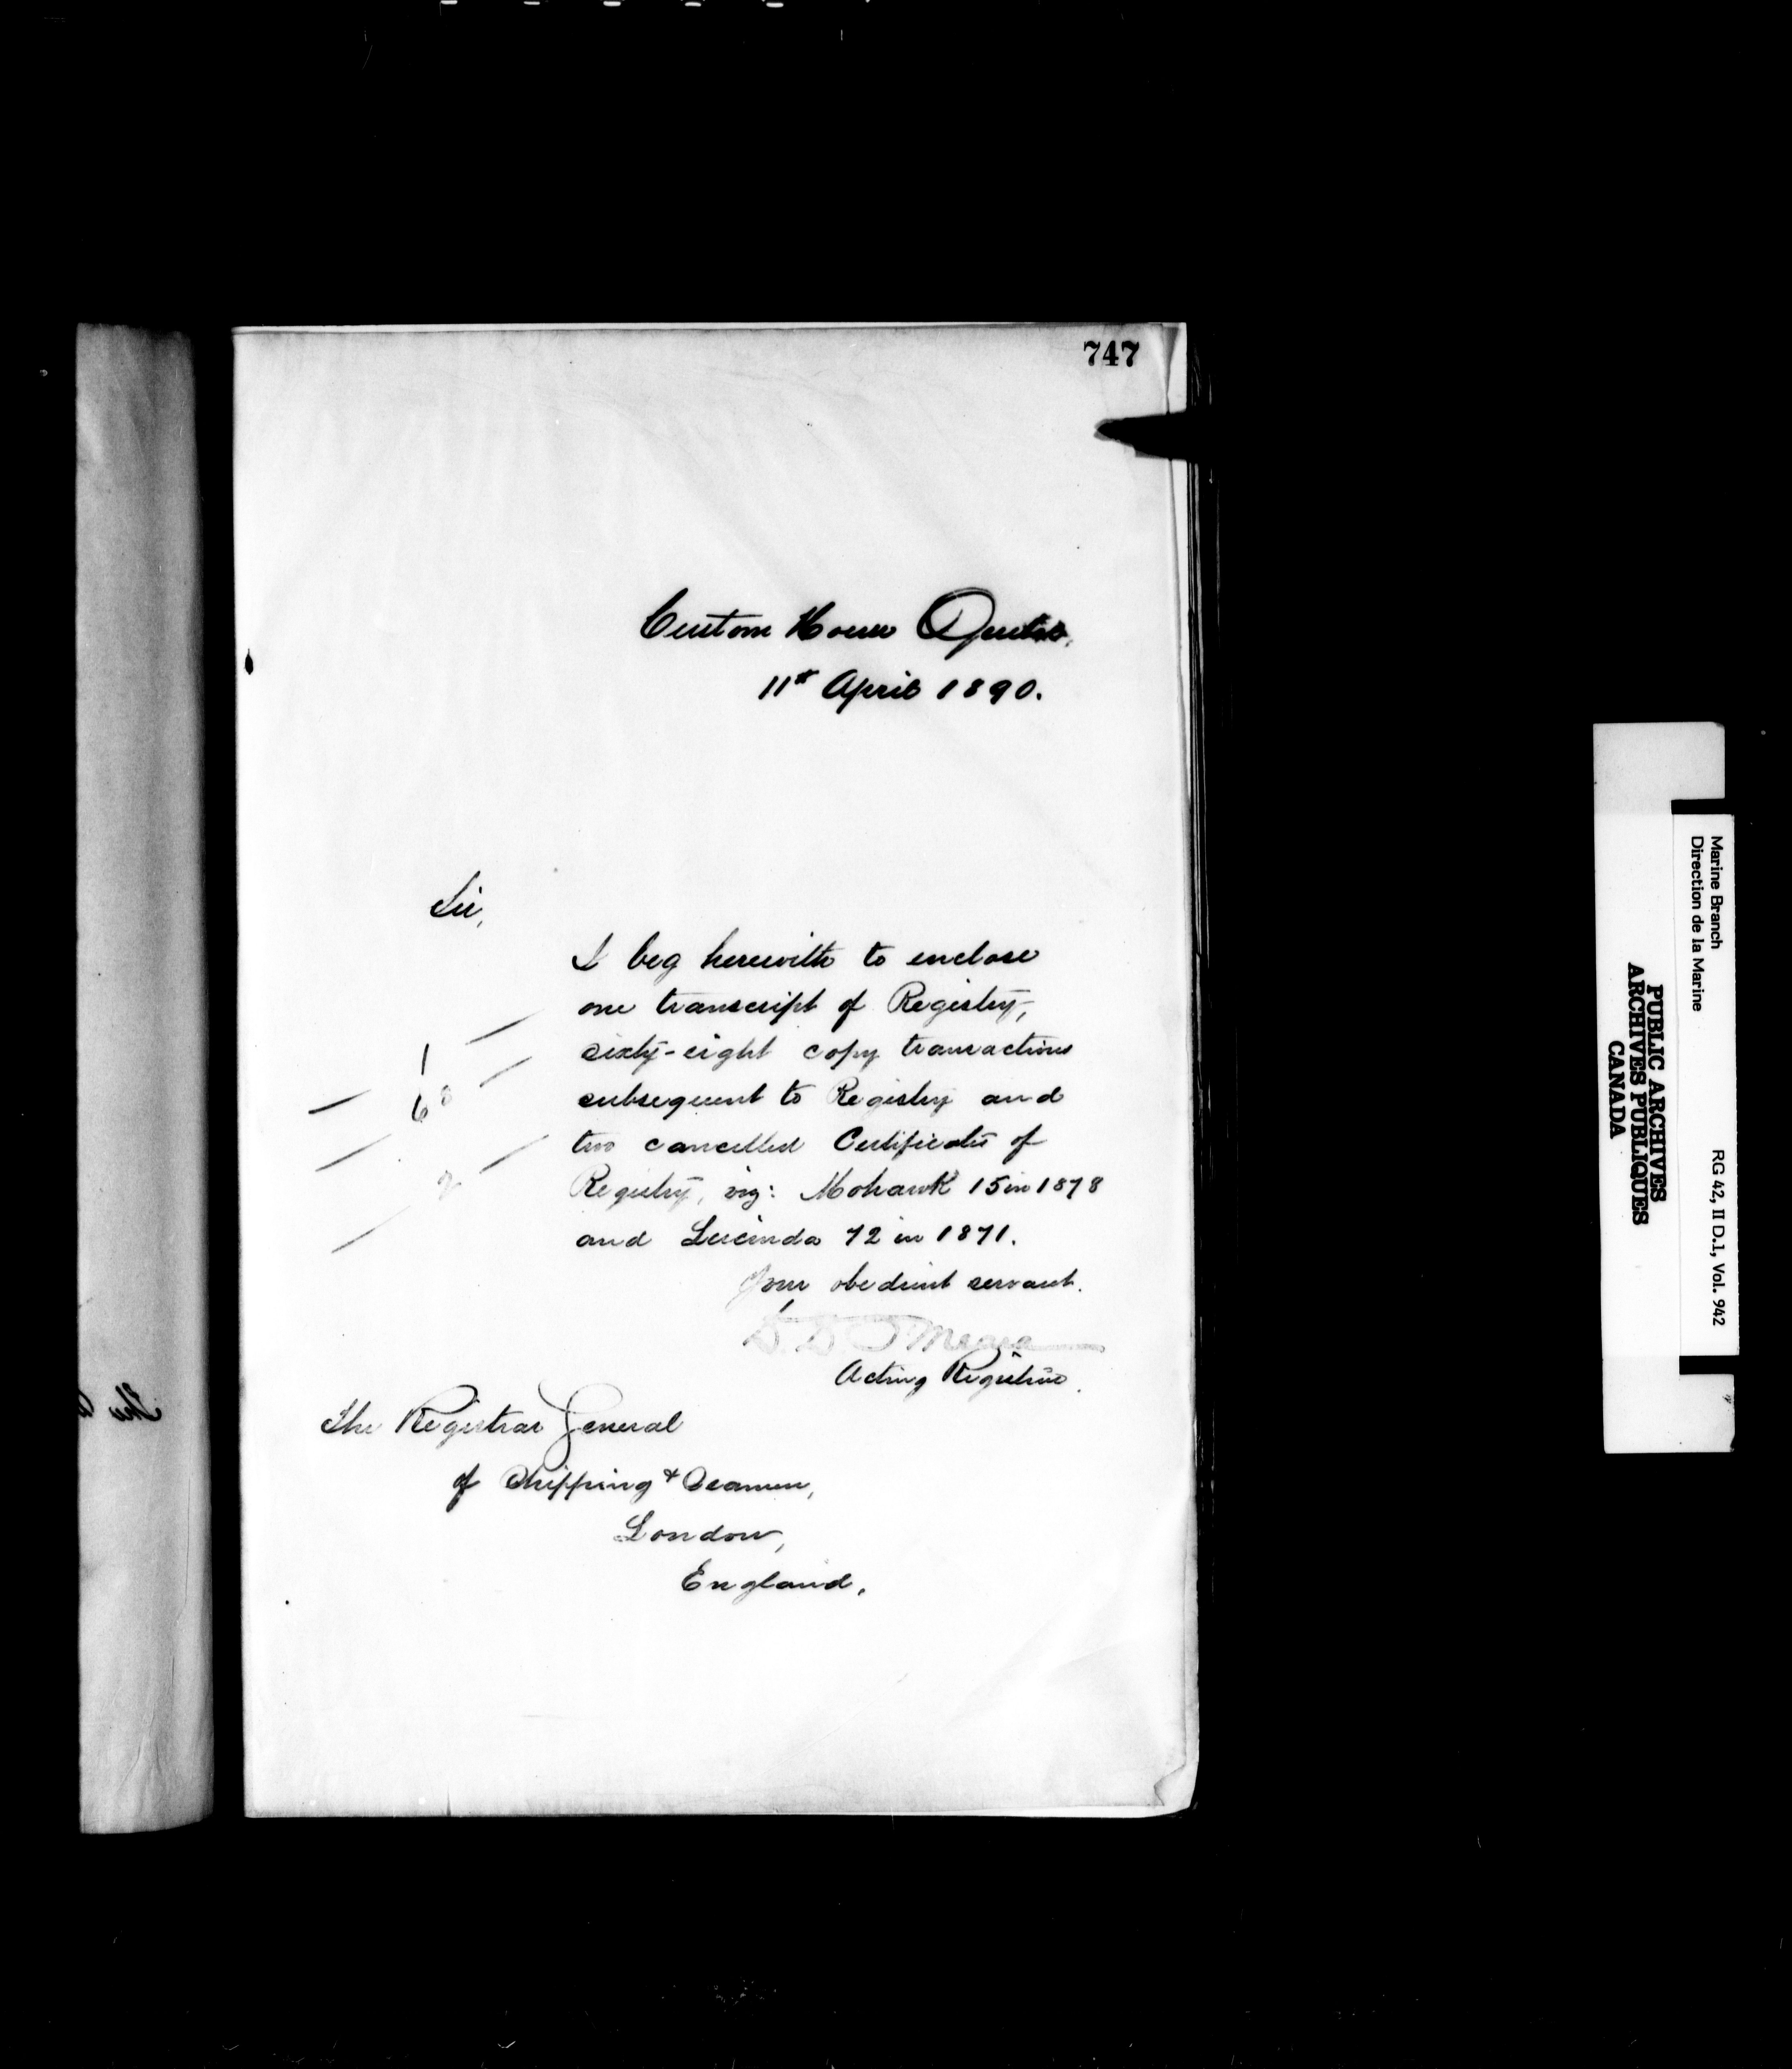 747
Custom House Quebec,
11th April 1890.
Sir,
I beg herewith to enclose
one transcript of Registry,
sixty-eight copy transactions
subsequent to Registry and
two cancelled Certificates of
Registry, viz: Mohawk 15 in 1878
and Lucinda 72 in 1871.
1
68
2
Your obedient servant.
Acting Registrar.
The Registrar General
of Shipping & Seamen,
London,
England.
The
Marine Branch
Direction de la Marine
RG 42, II D.1, Vol. 942
PUBLIC ARCHIVES
ARCHIVES PUBLIQUES
CANADA